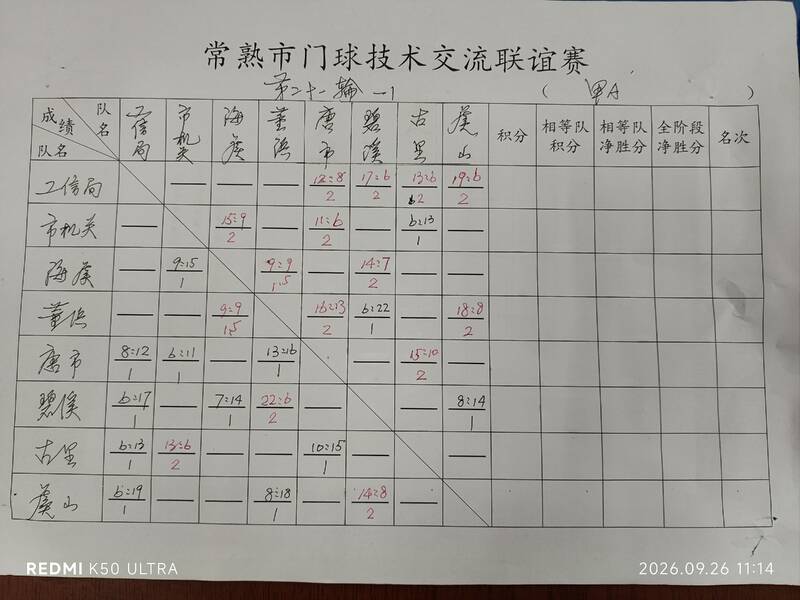 常熟市门球技术交流联谊赛
第二十一轮 -1 （ 甲A ）
成绩 队名 队名 工信局 市机关 海虞 董浜 唐市 碧溪 古里 虞山 积分 相等队积分 相等队净胜分 全阶段净胜分 名次
工信局 — — — 12:8 2 17:6 2 13:6 2 19:6 2
市机关 — 15:9 2 — 11:6 2 — 6:13 1 —
海虞 — 9:15 1 9:9 1.5 — 14:7 2 — —
董浜 — — 9:9 1.5 16:13 2 6:22 1 — 18:8 2
唐市 8:12 1 6:11 1 — 13:16 1 — 15:10 2 —
碧溪 6:17 1 — 7:14 1 22:6 2 — — 8:14 1
古里 6:13 1 13:6 2 — — 10:15 1 — —
虞山 6:19 1 — — 8:18 1 — 14:8 2 —
REDMI K50 ULTRA
2026.09.26 11:14